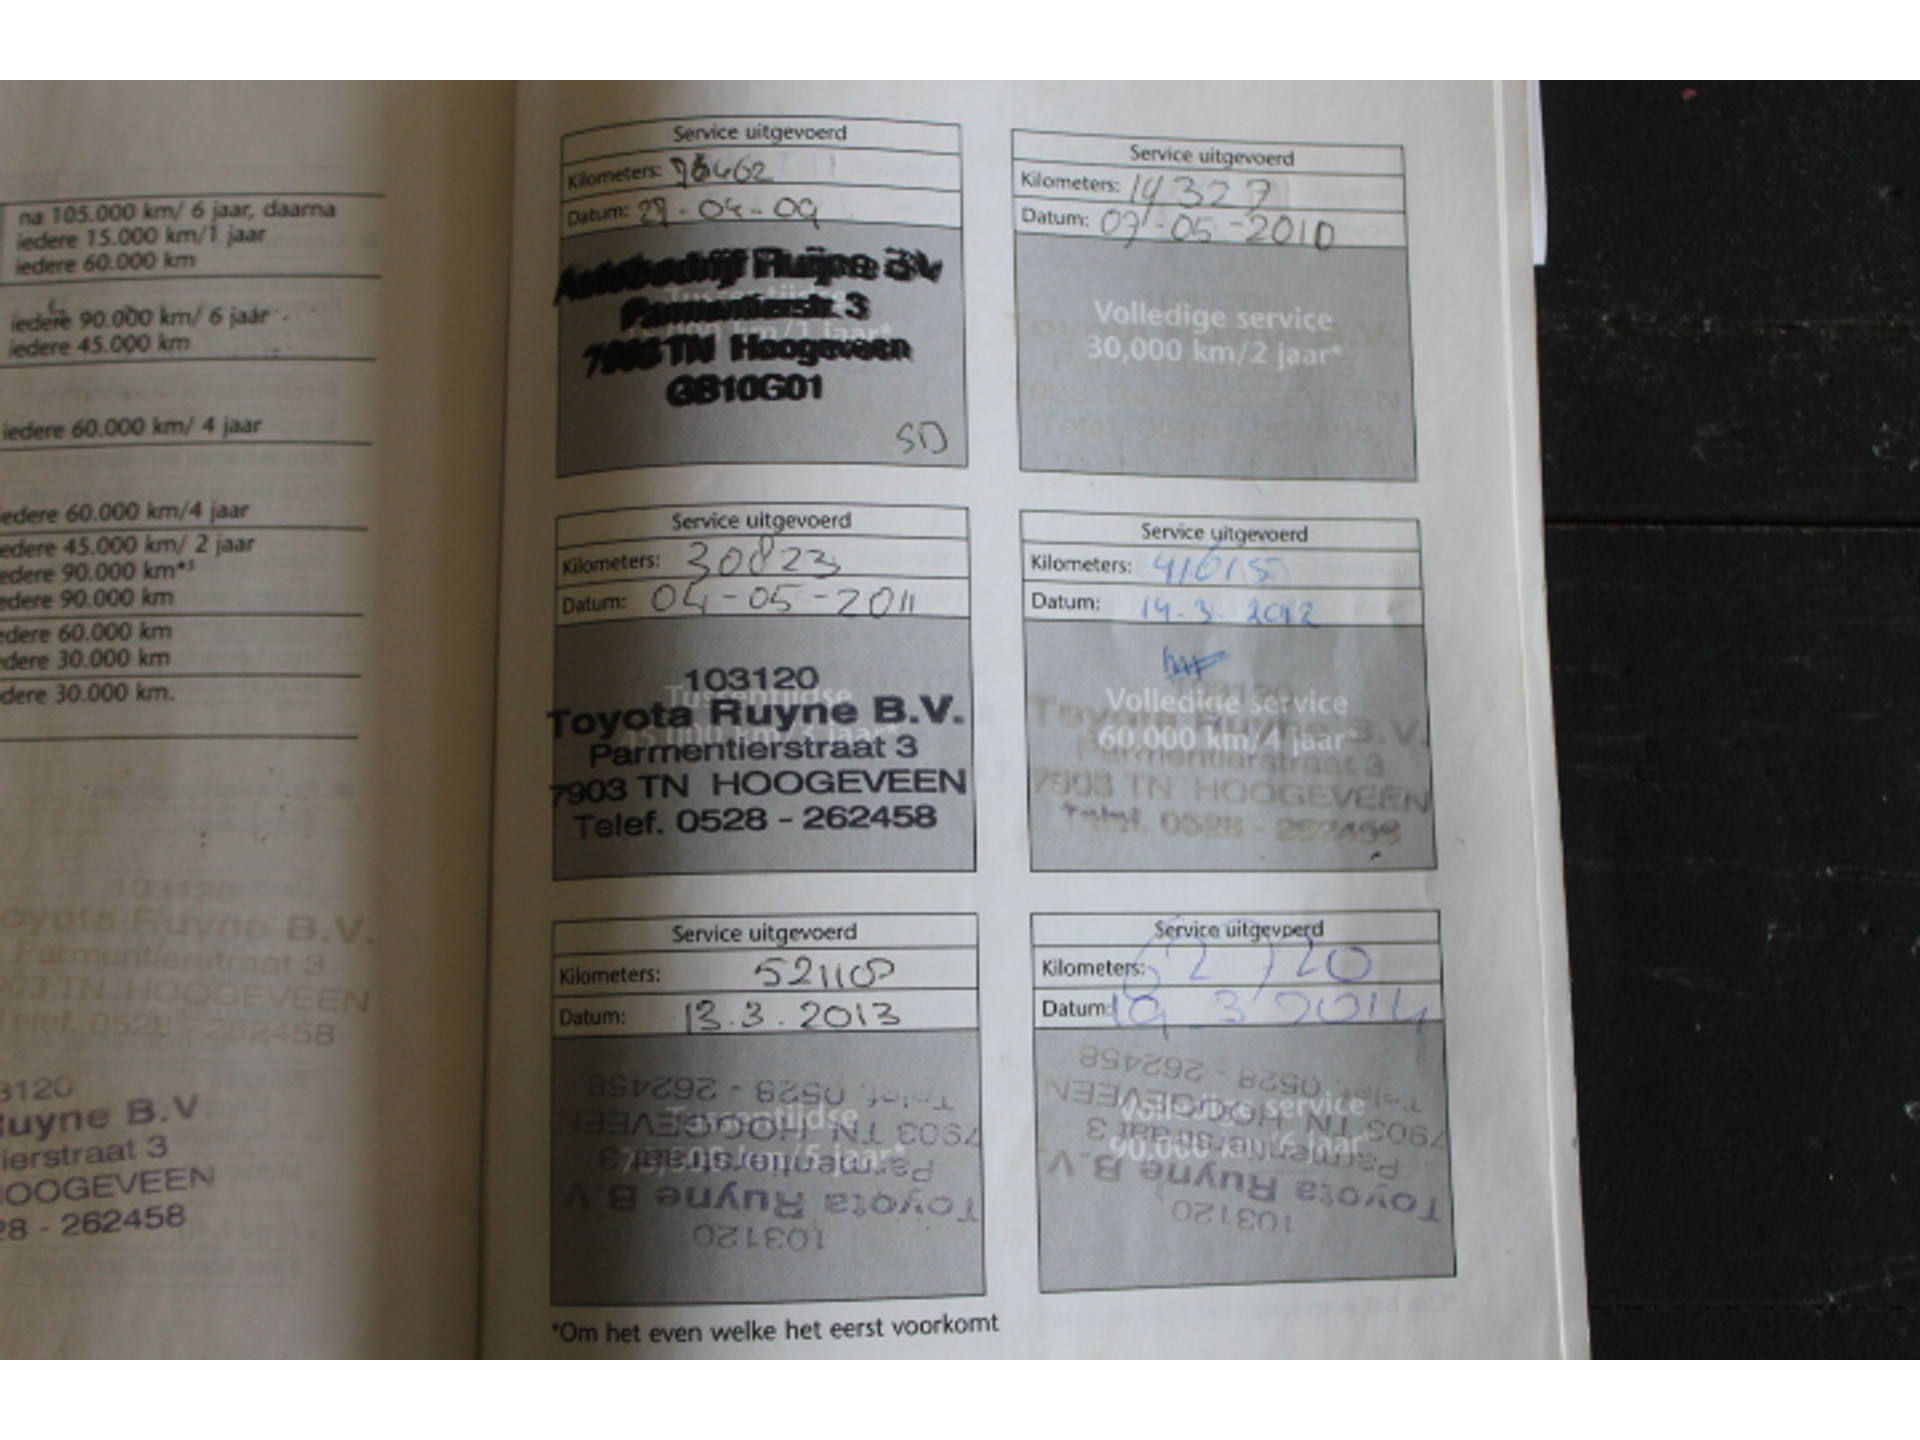 na 105.000 km/ 6 jaar, daarna
iedere 15.000 km/1 jaar
iedere 60.000 km
iedere 90.000 km/ 6 jaar
iedere 45.000 km
iedere 60.000 km/ 4 jaar
edere 60.000 km/4 jaar
edere 45.000 km/ 2 jaar
edere 90.000 km*³
edere 90.000 km
edere 60.000 km
edere 30.000 km
dere 30.000 km.
103120
oyota Ruyne B.V.
Parmentierstraat 3
903 TN HOOGEVEEN
Telef. 0528 - 262458
3120
Ruyne B.V
ierstraat 3
HOOGEVEEN
28 - 262458
Service uitgevoerd
Kilometers:
Datum: -04-09
Autobedrijf Ruijne BV
Parmentierstr. 3
7903 TN Hoogeveen
GB10G01
SD
Service uitgevoerd
Kilometers: 14327
Datum: 07-05-2010
Volledige service
30,000 km/2 jaar*
Service uitgevoerd
Kilometers: 30823
Datum: 04-05-2011
Tussentijdse
45.000 km/3 jaar*
103120
Toyota Ruyne B.V.
Parmentierstraat 3
7903 TN HOOGEVEEN
Telef. 0528 - 262458
Service uitgevoerd
Kilometers: 41615
Datum: 14.3.2012
Volledige service
60.000 km/4 jaar*
Toyota Ruyne B.V.
Parmentierstraat 3
7903 TN HOOGEVEEN
Telef. 0528 - 262458
Service uitgevoerd
Kilometers: 52110
Datum: 13.3.2013
Tussentijdse
75.000 km/5 jaar*
103120
Toyota Ruyne B.V.
Parmentierstraat 3
7903 TN HOOGEVEEN
Telef. 0528 - 262458
Service uitgevoerd
Kilometers: 62720
Datum: 19.3.2014
Volledige service
90.000 km/6 jaar*
103120
Toyota Ruyne B.V.
Parmentierstraat 3
7903 TN HOOGEVEEN
Telef. 0528 - 262458
*Om het even welke het eerst voorkomt